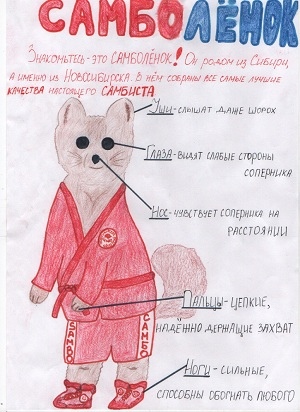 САМБОЛЁНОК
Знакомьтесь-это САМБОЛЁНОК! Он родом из Сибири,
а именно из Новосибирска. В нём собраны все самые лучшие
качества настоящего САМБИСТА.
Уши-слышат даже шорох
Глаза-видят слабые стороны
соперника
Нос-чувствует соперника на
расстоянии
Пальцы-цепкие,
надёжно держащие захват
САМБО
САМБО
Ноги-сильные,
способны обогнать любого